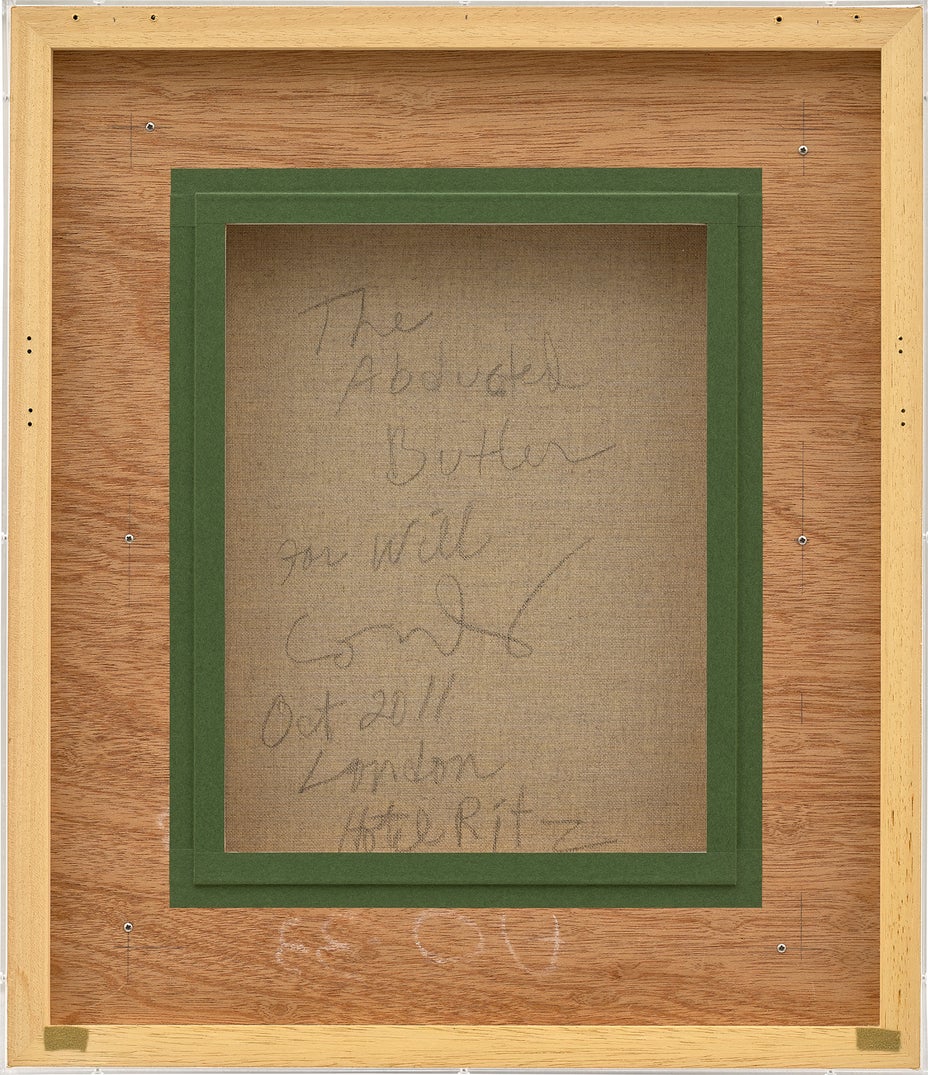 The
Abducted
Butler
For Will
Condo
Oct 2011
London
Hotel Ritz